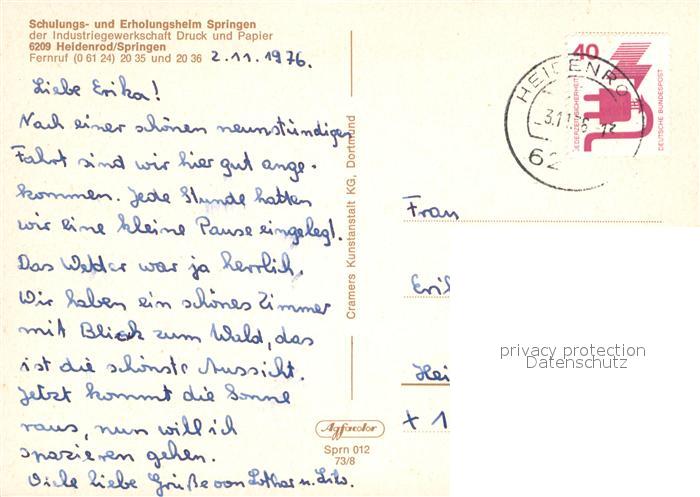 Schulungs- und Erholungsheim Springen
der Industriegewerkschaft Druck und Papier
6209 Heidenrod/Springen
Fernruf (0 61 24) 20 35 und 20 36
2.11.1976.
Liebe Erika!
Nach einer schönen neunstündigen
Fahrt sind wir hier gut ange-
kommen. Jede Stunde hatten
wir eine kleine Pause eingelegt.
Das Wetter war ja herrlich.
Wir haben ein schönes Zimmer
mit Blick zum Wald, das
ist die schönste Aussicht.
Jetzt kommt die Sonne
raus, nun will ich
spazieren gehen.
Viele liebe Grüße von Lothar u. Lilo.
Cramers Kunstanstalt KG, Dortmund
Agfacolor
Sprn 012
73/8
40
JEDERZEIT SICHERHEIT
DEUTSCHE BUNDESPOST
HEIDENRO
62
Frau
Eri
Hei
privacy protection
Datenschutz